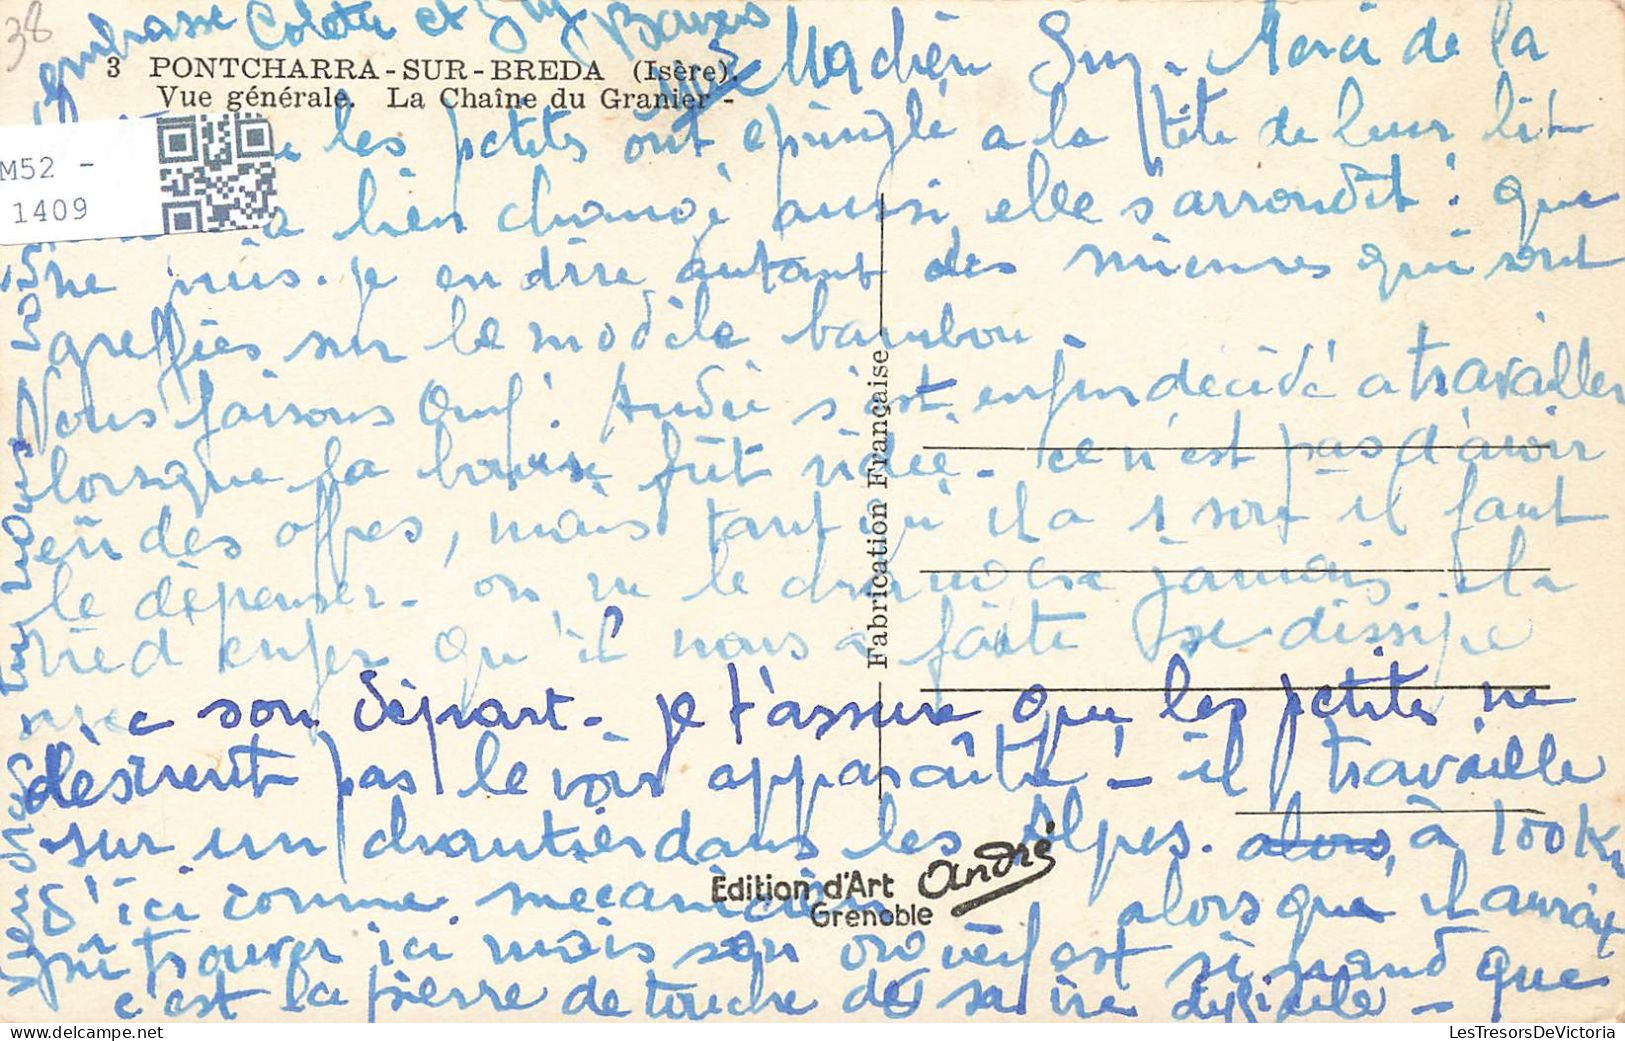 38
embrasse Colette et Guy Baisers
3 PONTCHARRA-SUR-BREDA (Isère).
Vue générale. La Chaîne du Granier -
Ma chère Suz. Merci de la
les petites ont épinglé a la tête de leur lit
M52 -
1409
bien changé aussi elle s'arrondit! que
ne puis-je en dire autant des miennes qui sont
greffées sur le modèle bambou.
Nous faisons Ouf! André s'est enfin décidé a travailler
lorsque la bourse fût vidée. Ce n'est pas d'avoir
eu des offres, mais tant qu'il a 1 sou il faut
le dépenser. on ne le changera jamais. il a
qu'il nous a faite se dissipe
avec son départ. je t'assure que les petites ne
désirent pas le voir apparaître! - il travaille
sur un chantier dans les Alpes. alors, à 100 Km
d'ici comme mécanicien alorsque il aurait
pu trouver ici mais son orgueil est si grand que
c'est la pierre de touche de sa vie difficile -
Fabrication Française
Edition d'Art André
Grenoble
LesTresorsDeVictoria.com